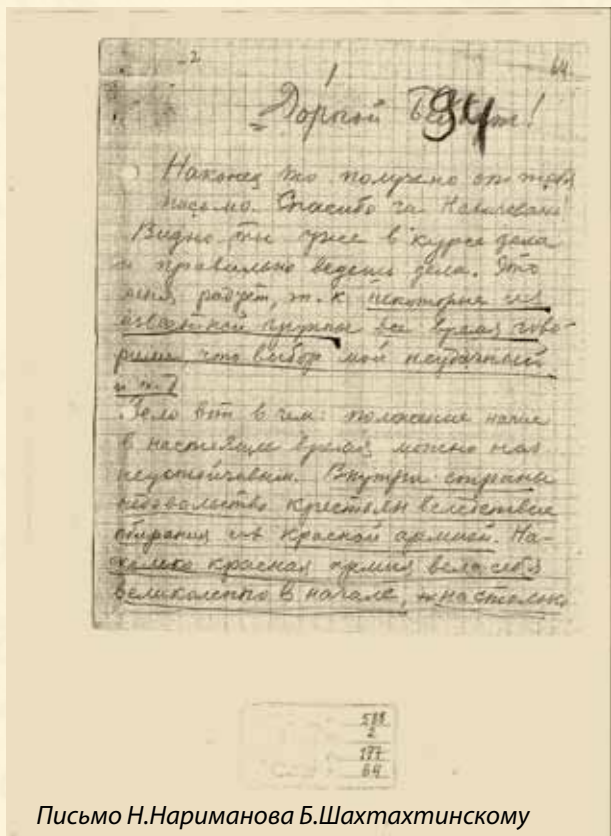 2 64
1
Дорогой Бейбут! 94
Наконец то получено от тебя
письмо. Спасибо за
Видно ты уже в курсе дела
и правильно ведешь дела. Это
меня радует, т.к некоторые из
известной группы все время гово-
рили, что выбор мой неудачный
и т.д
Дело вот в чем: положение наше
в настоящее время можно наз
неустойчивым. Внутри страны
недовольство крестьян вследствие
обирания их красной армией. На-
сколько красная армия вела себя
великолепно в начале, настолько
588
2
177
64
Письмо Н.Нариманова Б.Шахтахтинскому